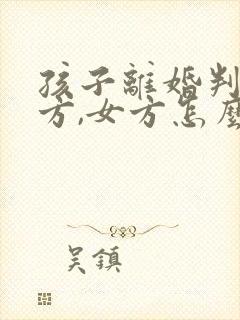 孩子離婚判
方,女方怎麼
吳鎮